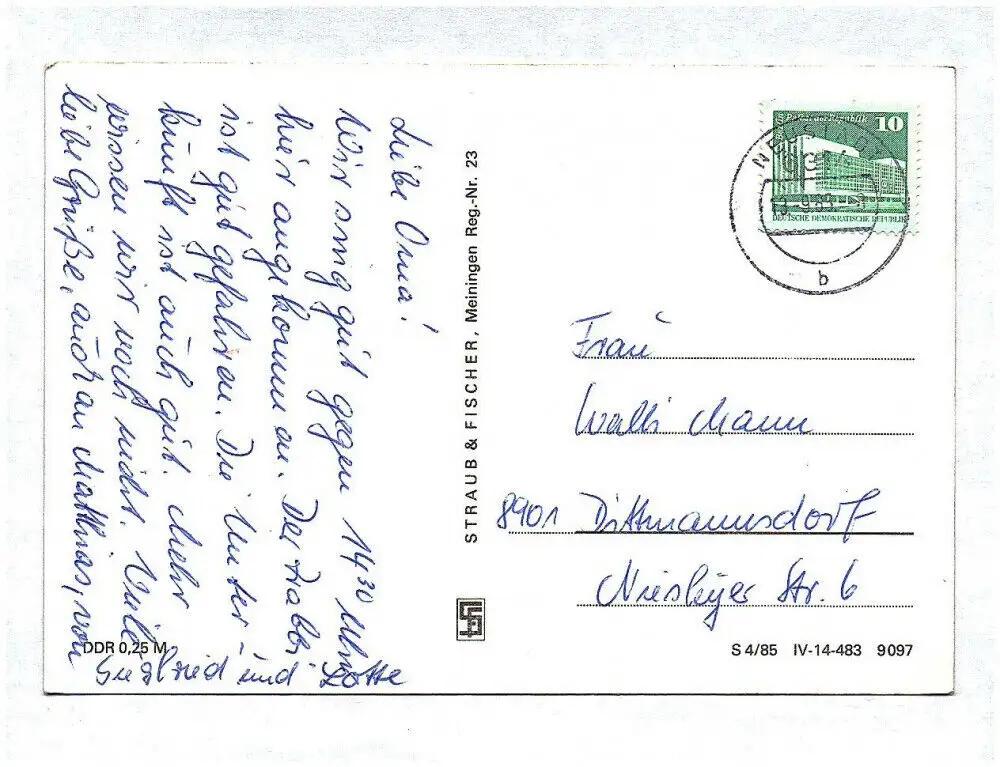 Liebe Oma!
Wir sind gut gegen 14³⁰ Uhr
hier angekommen. Der Trabbi
ist gut gefahren. Die Unter-
kunft ist auch gut. Mehr
wissen wir noch nicht. Viele
liebe Grüße, auch an Mathias, von
Siegfried und Lotte
DDR 0,25 M
STRAUB & FISCHER, Meiningen Reg.-Nr. 23
10
Palast der Republik
DEUTSCHE DEMOKRATISCHE REPUBLIK
NEUSTADT
b
Frau
Walli Mann
8901 Dittmannsdorf
Str. 6
S 4/85 IV-14-483 9097